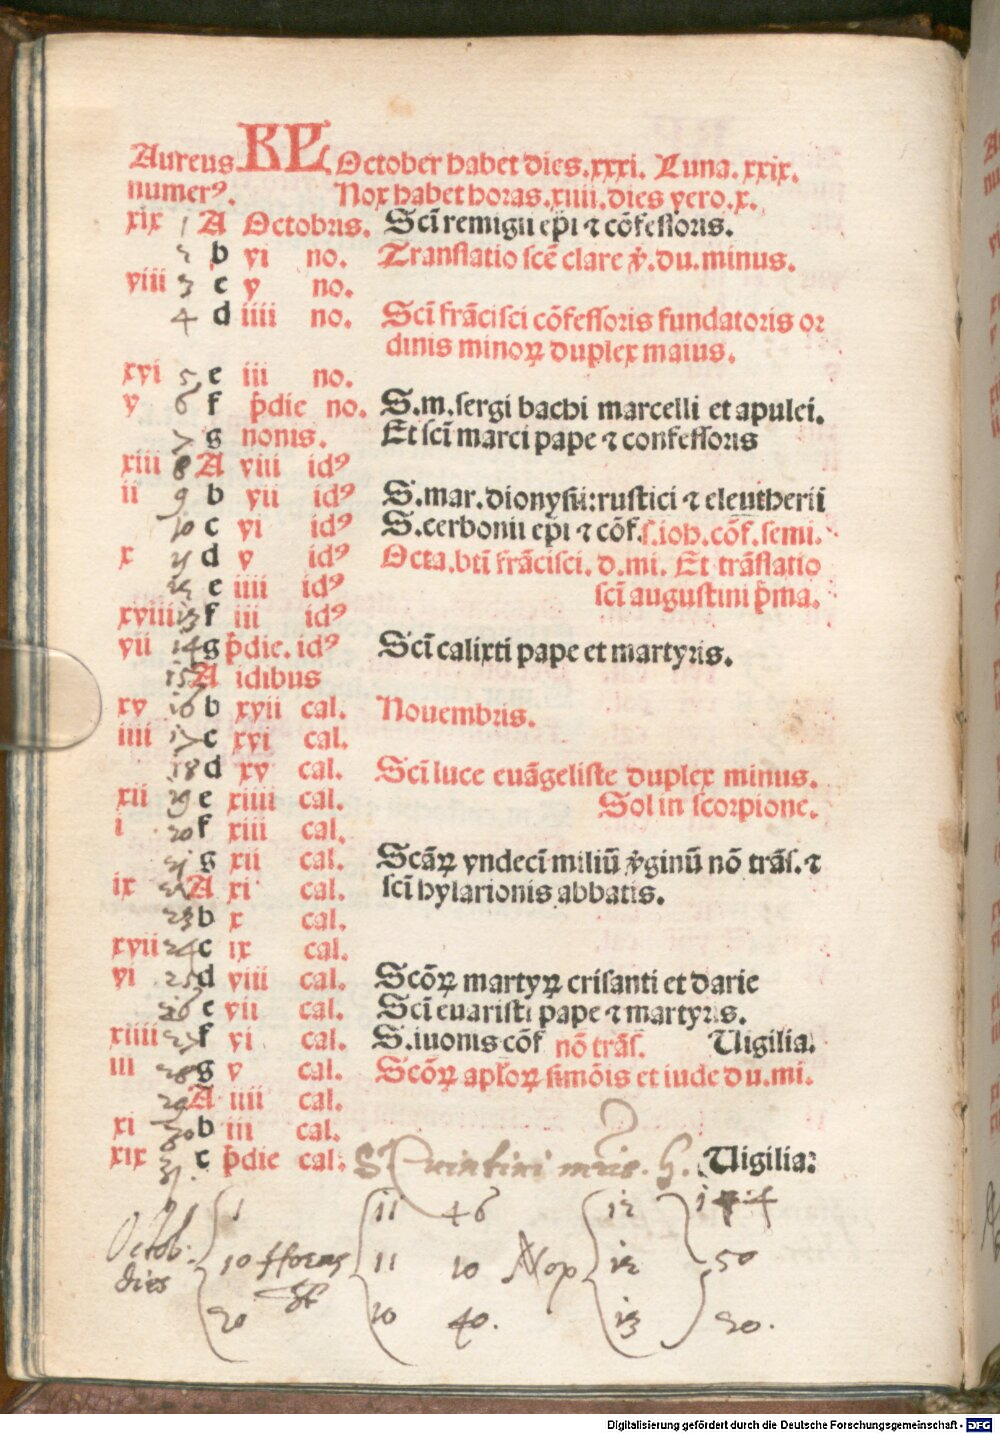 Aureus KL October habet dies.xxxi. Luna.xxix.
numerꝰ. Nox habet horas.xiiii.dies vero.x.
xix 1 A Octobris. Scī remigii ep̄i ⁊ cōfessoris.
2 b vi no. Translatio scē clare v̄.du.minus.
viii 3 c v no.
4 d iiii no. Scī frācisci cōfessoris fundatoris or
dinis minoꝝ duplex maius.
xvi 5 e iii no.
v 6 f p̄die no. S.m.sergi bachi marcelli et apulei.
7 g nonis. Et scī marci pape ⁊ confessoris
xiii 8 A viii idꝰ
ii 9 b vii idꝰ S.mar.dionysii:rustici ⁊ eleutherii
10 c vi idꝰ S.cerbonii ep̄i ⁊ cōf.s.ioh.cōf.semi.
x 11 d v idꝰ Octa.bti frācisci. d.mi. Et trāslatio
12 e iiii idꝰ scī augustini p̄ma.
xviii 13 f iii idꝰ
vii 14 g p̄die. idꝰ Scī calixti pape et martyris.
15 A idibus
xv 16 b xvii cal. Nouembris.
iiii 17 c xvi cal.
18 d xv cal. Scī luce euāgeliste duplex minus.
xii 19 e xiiii cal. Sol in scorpione.
i 20 f xiii cal.
21 g xii cal. Scāꝝ vndecī miliū v̄ginū nō trās.⁊
ix 22 A xi cal. scī hylarionis abbatis.
23 b x cal.
xvii 24 c ix cal.
vi 25 d viii cal. Scōꝝ martyꝝ crisanti et darie
26 e vii cal. Scī euaristi pape ⁊ martyris.
xiiii 27 f vi cal. S.iuonis cōf nō trās. Uigilia.
iii 28 g v cal. Scōꝝ apl̄oꝝ simōis et iude du.mi.
29 A iiii cal.
xi 30 b iii cal.
xix 31 c p̄die cal. S Quintini mris. h. Uigilia:
1 11 46 12
Octob: 10 horas 11 10 Nox 12 50
dies 20 10 40. 13 20.
Digitalisierung gefördert durch die Deutsche Forschungsgemeinschaft - DFG